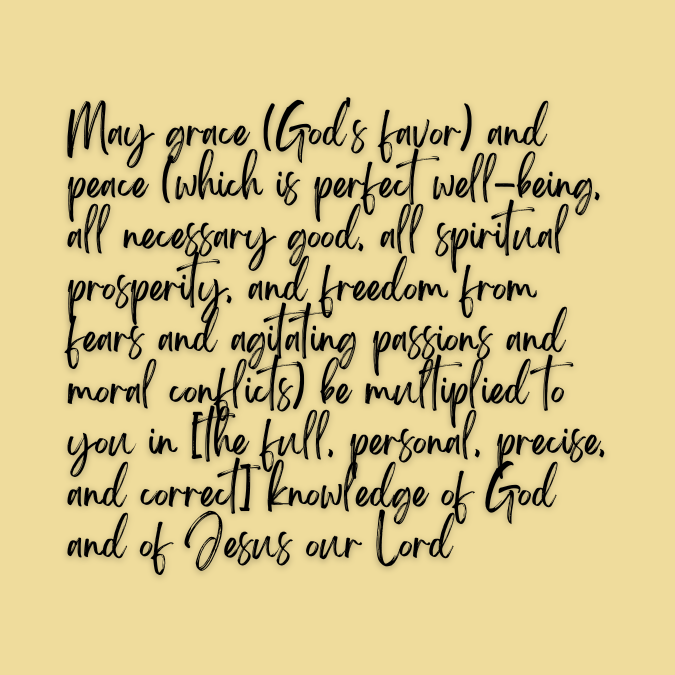 May grace (God's favor) and
peace (which is perfect well-being,
all necessary good, all spiritual
prosperity, and freedom from
fears and agitating passions and
moral conflicts) be multiplied to
you in [the full, personal, precise,
and correct] knowledge of God
and of Jesus our Lord